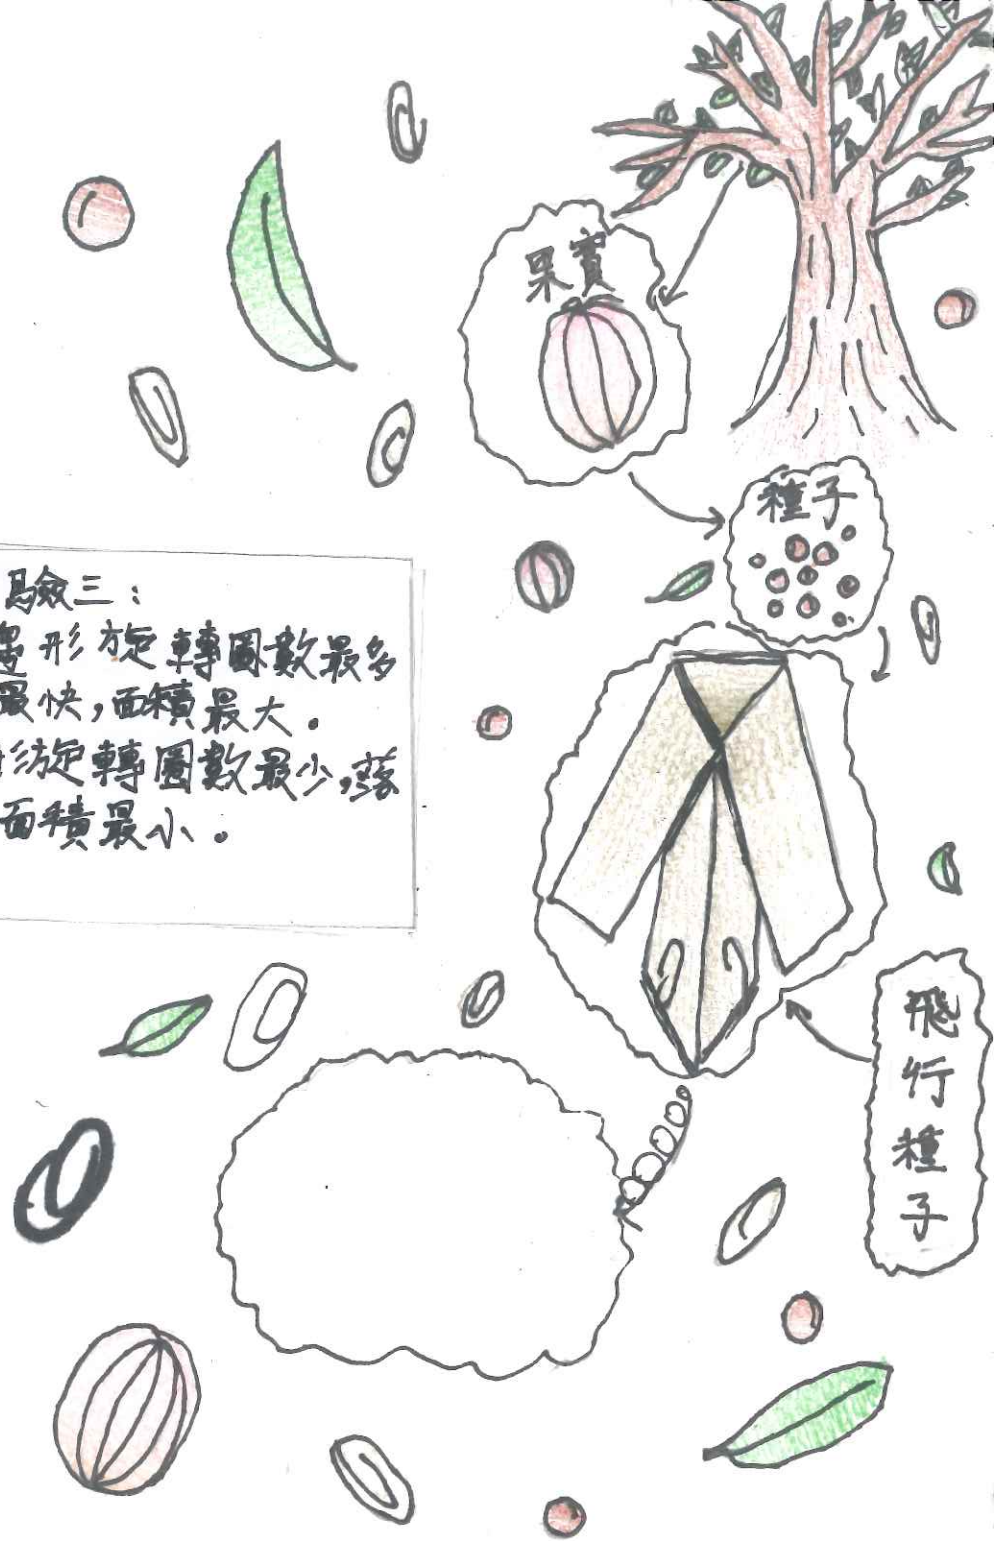 果實
種子
驗三：
邊形旋轉圈數最多
最快，面積最大。
形旋轉圈數最少，落
面積最小。
飛行種子